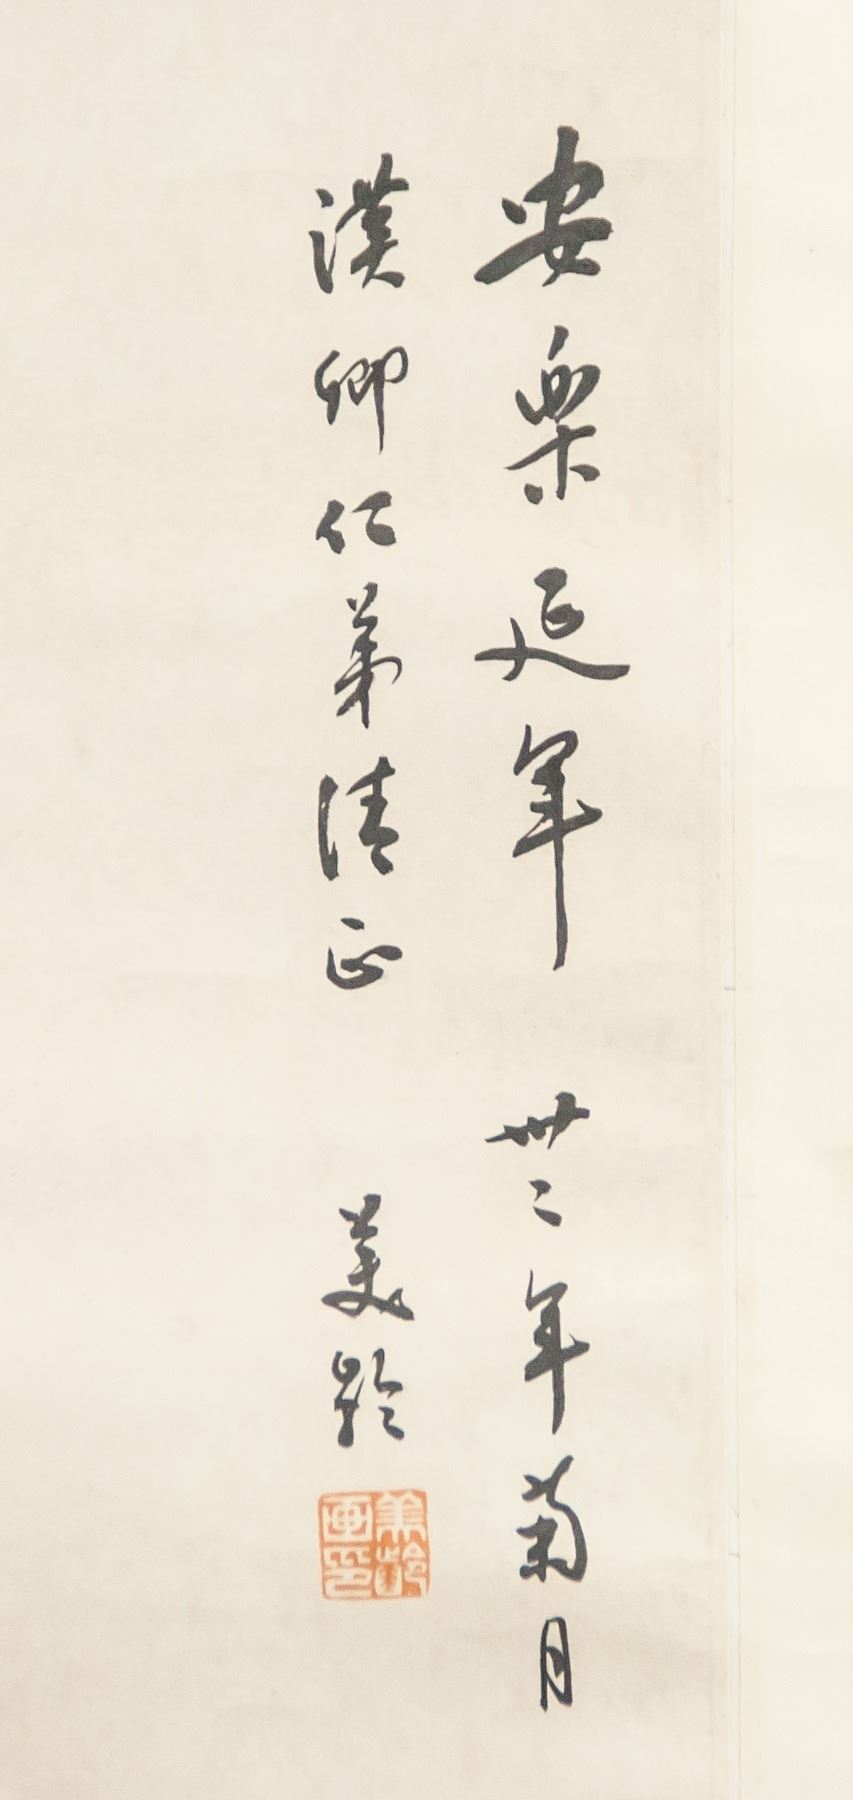 安樂延年 卅二年菊月
漢卿仁弟清正 美齡
美齡畫印